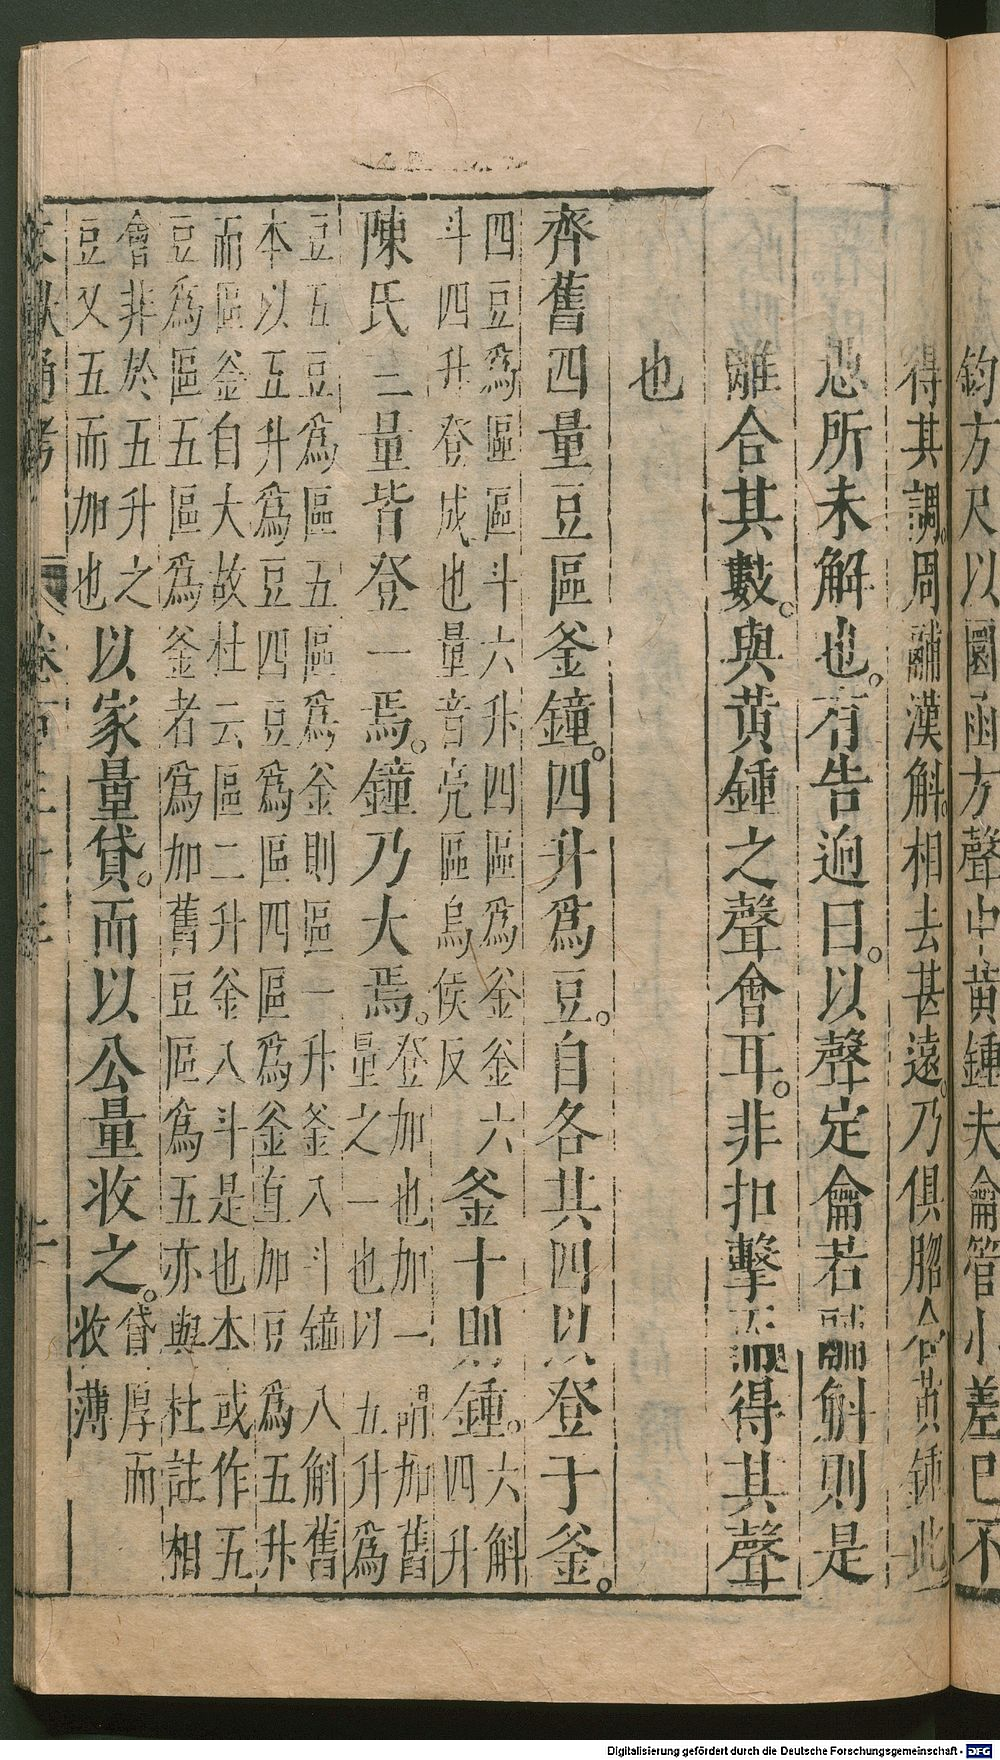 鈞方尺以圜函方聲中黃鍾夫龠管小差已不
得其調。周鬴漢斛。相去甚遠。乃俱脗合黃鍾此
愚所未解也。有告逈曰。以聲定龠若鬴斛則是
離合其數。與黃鍾之聲會耳。非扣擊而得其聲
也
齊舊四量豆區釜鐘。四升爲豆。自各共四以登于釜。
四豆爲區區斗六升四區爲釜釜六
斗四升登成也量音亮區烏侯反
釜十則鍾。
六斛
四升
陳氏三量皆登一焉。鐘乃大焉。
登加也加一謂加舊
量之一也以五升爲
豆五豆爲區五區爲釜則區一升釜八斗鐘八斛舊
本以五升爲豆四豆爲區四區爲釜直加豆爲五升
而區釜自大故杜云區二升釜八斗是也本或作五
豆爲區五區爲釜者爲加舊豆區爲五亦與杜註相
會非於五升之
豆又五而加也
以家量貸。而以公量收之。
貸厚而
收薄
Digitalisierung gefördert durch die Deutsche Forschungsgemeinschaft - DFG